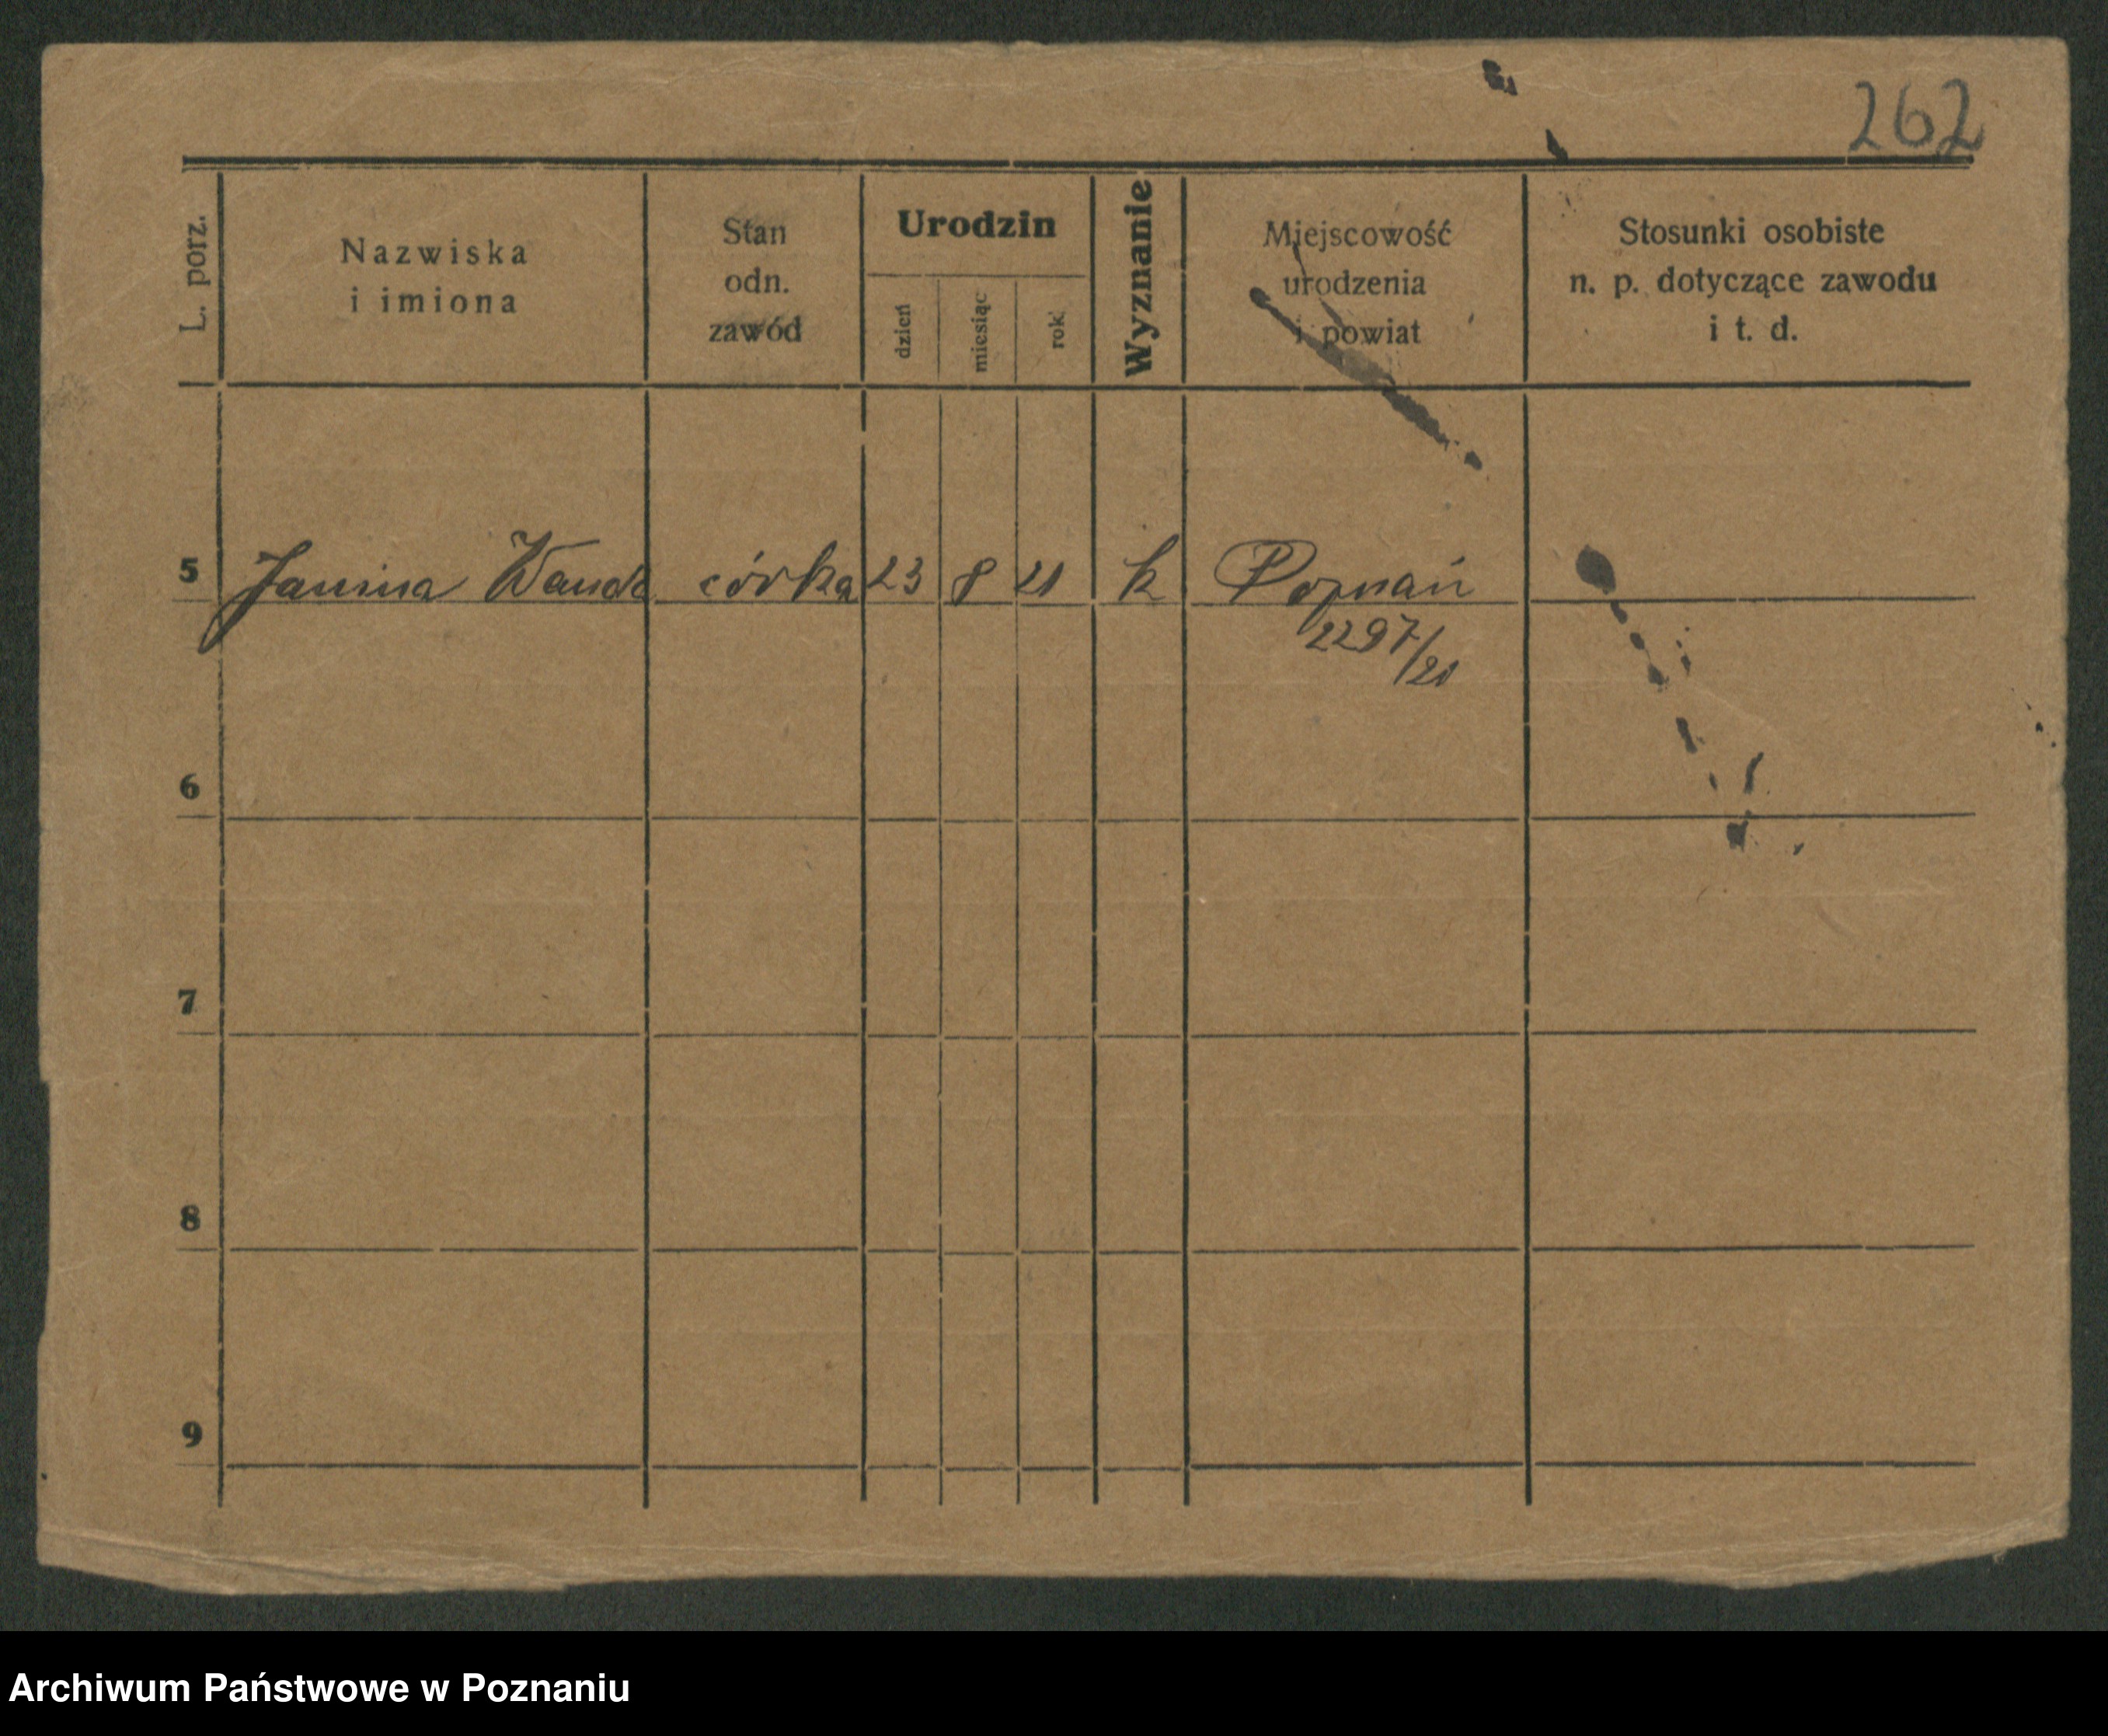 262
L. porz.
Nazwiska
i imiona
Stan
odn.
zawód
Urodzin
dzień
miesiąc
rok
Wyznanie
Miejscowość
urodzenia
i powiat
Stosunki osobiste
n. p. dotyczące zawodu
i t. d.
5 Janina Wanda córka 23 8 21 k Poznań
2297/21
6
7
8
9
Archiwum Państwowe w Poznaniu